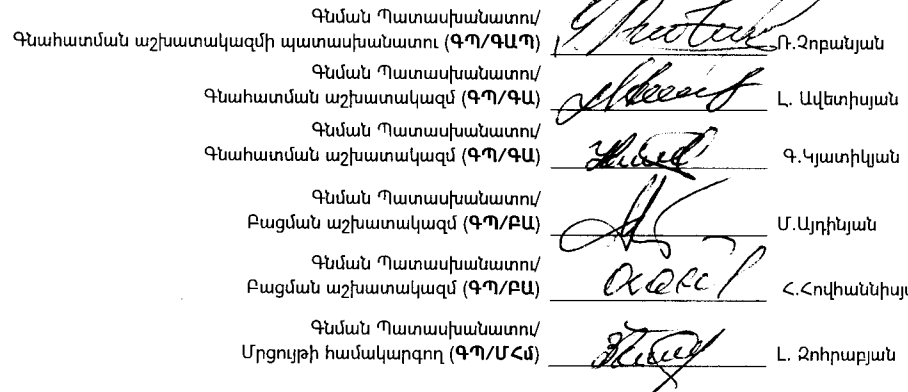 Գնման Պատասխանատու/
Գնահատման աշխատակազմի պատասխանատու (ԳՊ/ԳԱՊ) Ռ.Չոբանյան
Գնման Պատասխանատու/
Գնահատման աշխատակազմ (ԳՊ/ԳԱ) Լ. Ավետիսյան
Գնման Պատասխանատու/
Գնահատման աշխատակազմ (ԳՊ/ԳԱ) Գ.Կյատիկյան
Գնման Պատասխանատու/
Բացման աշխատակազմ (ԳՊ/ԲԱ) Մ.Այդինյան
Գնման Պատասխանատու/
Բացման աշխատակազմ (ԳՊ/ԲԱ) Հ.Հովհաննիսյ
Գնման Պատասխանատու/
Մրցույթի համակարգող (ԳՊ/ՄՀմ) Լ. Զոհրաբյան